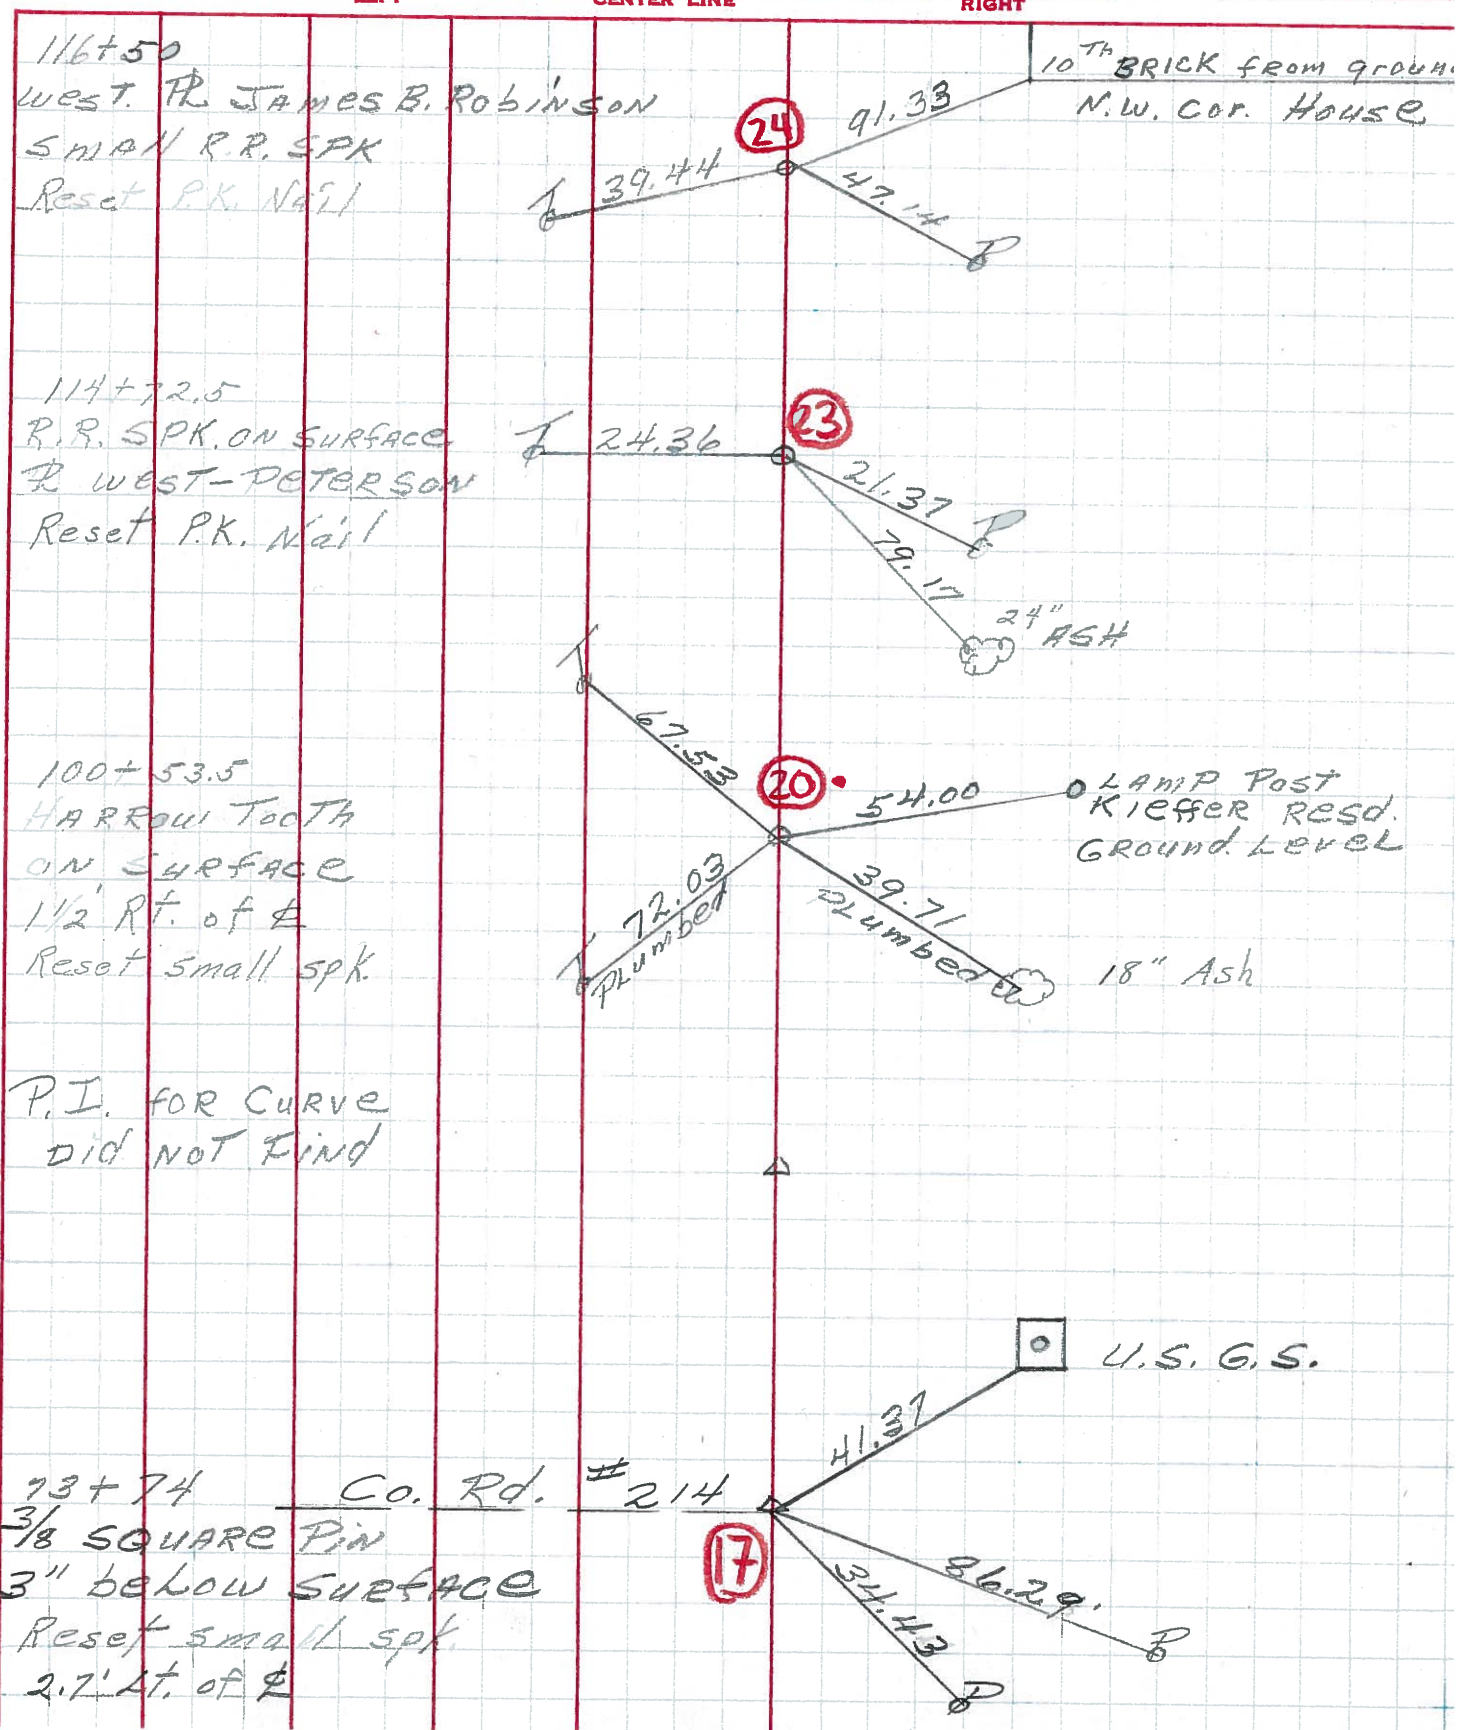 CENTER LINE
RIGHT
116+50
West. PL James B. Robinson
Small R.R. SPK
Reset P.K. Nail
24
91.33
39.44
47.14
T
P
10Th BRICK from groun
N.W. Cor. House
114+72.5
R.R. SPK. ON SURFACE
PL WEST-PETERSON
Reset P.K. Nail
23
T
24.36
21.37
P
79.17
24" ASH
T
67.53
100+53.5
HARROW TOOTH
ON SURFACE
1½' Rt. of ℄
Reset small spk.
20
54.00
LAMP Post
Kieffer Resd.
Ground Level
72.03
Plumbed
T
39.71
Plumbed
18" Ash
P.I. for Curve
Did Not Find
U.S.G.S.
41.37
93+74
Co. Rd. #214
3/8 SQUARE Pin
3" below SURFACE
Reset small spk.
2.7' Lt. of ℄
17
86.29.
P
34.43
P